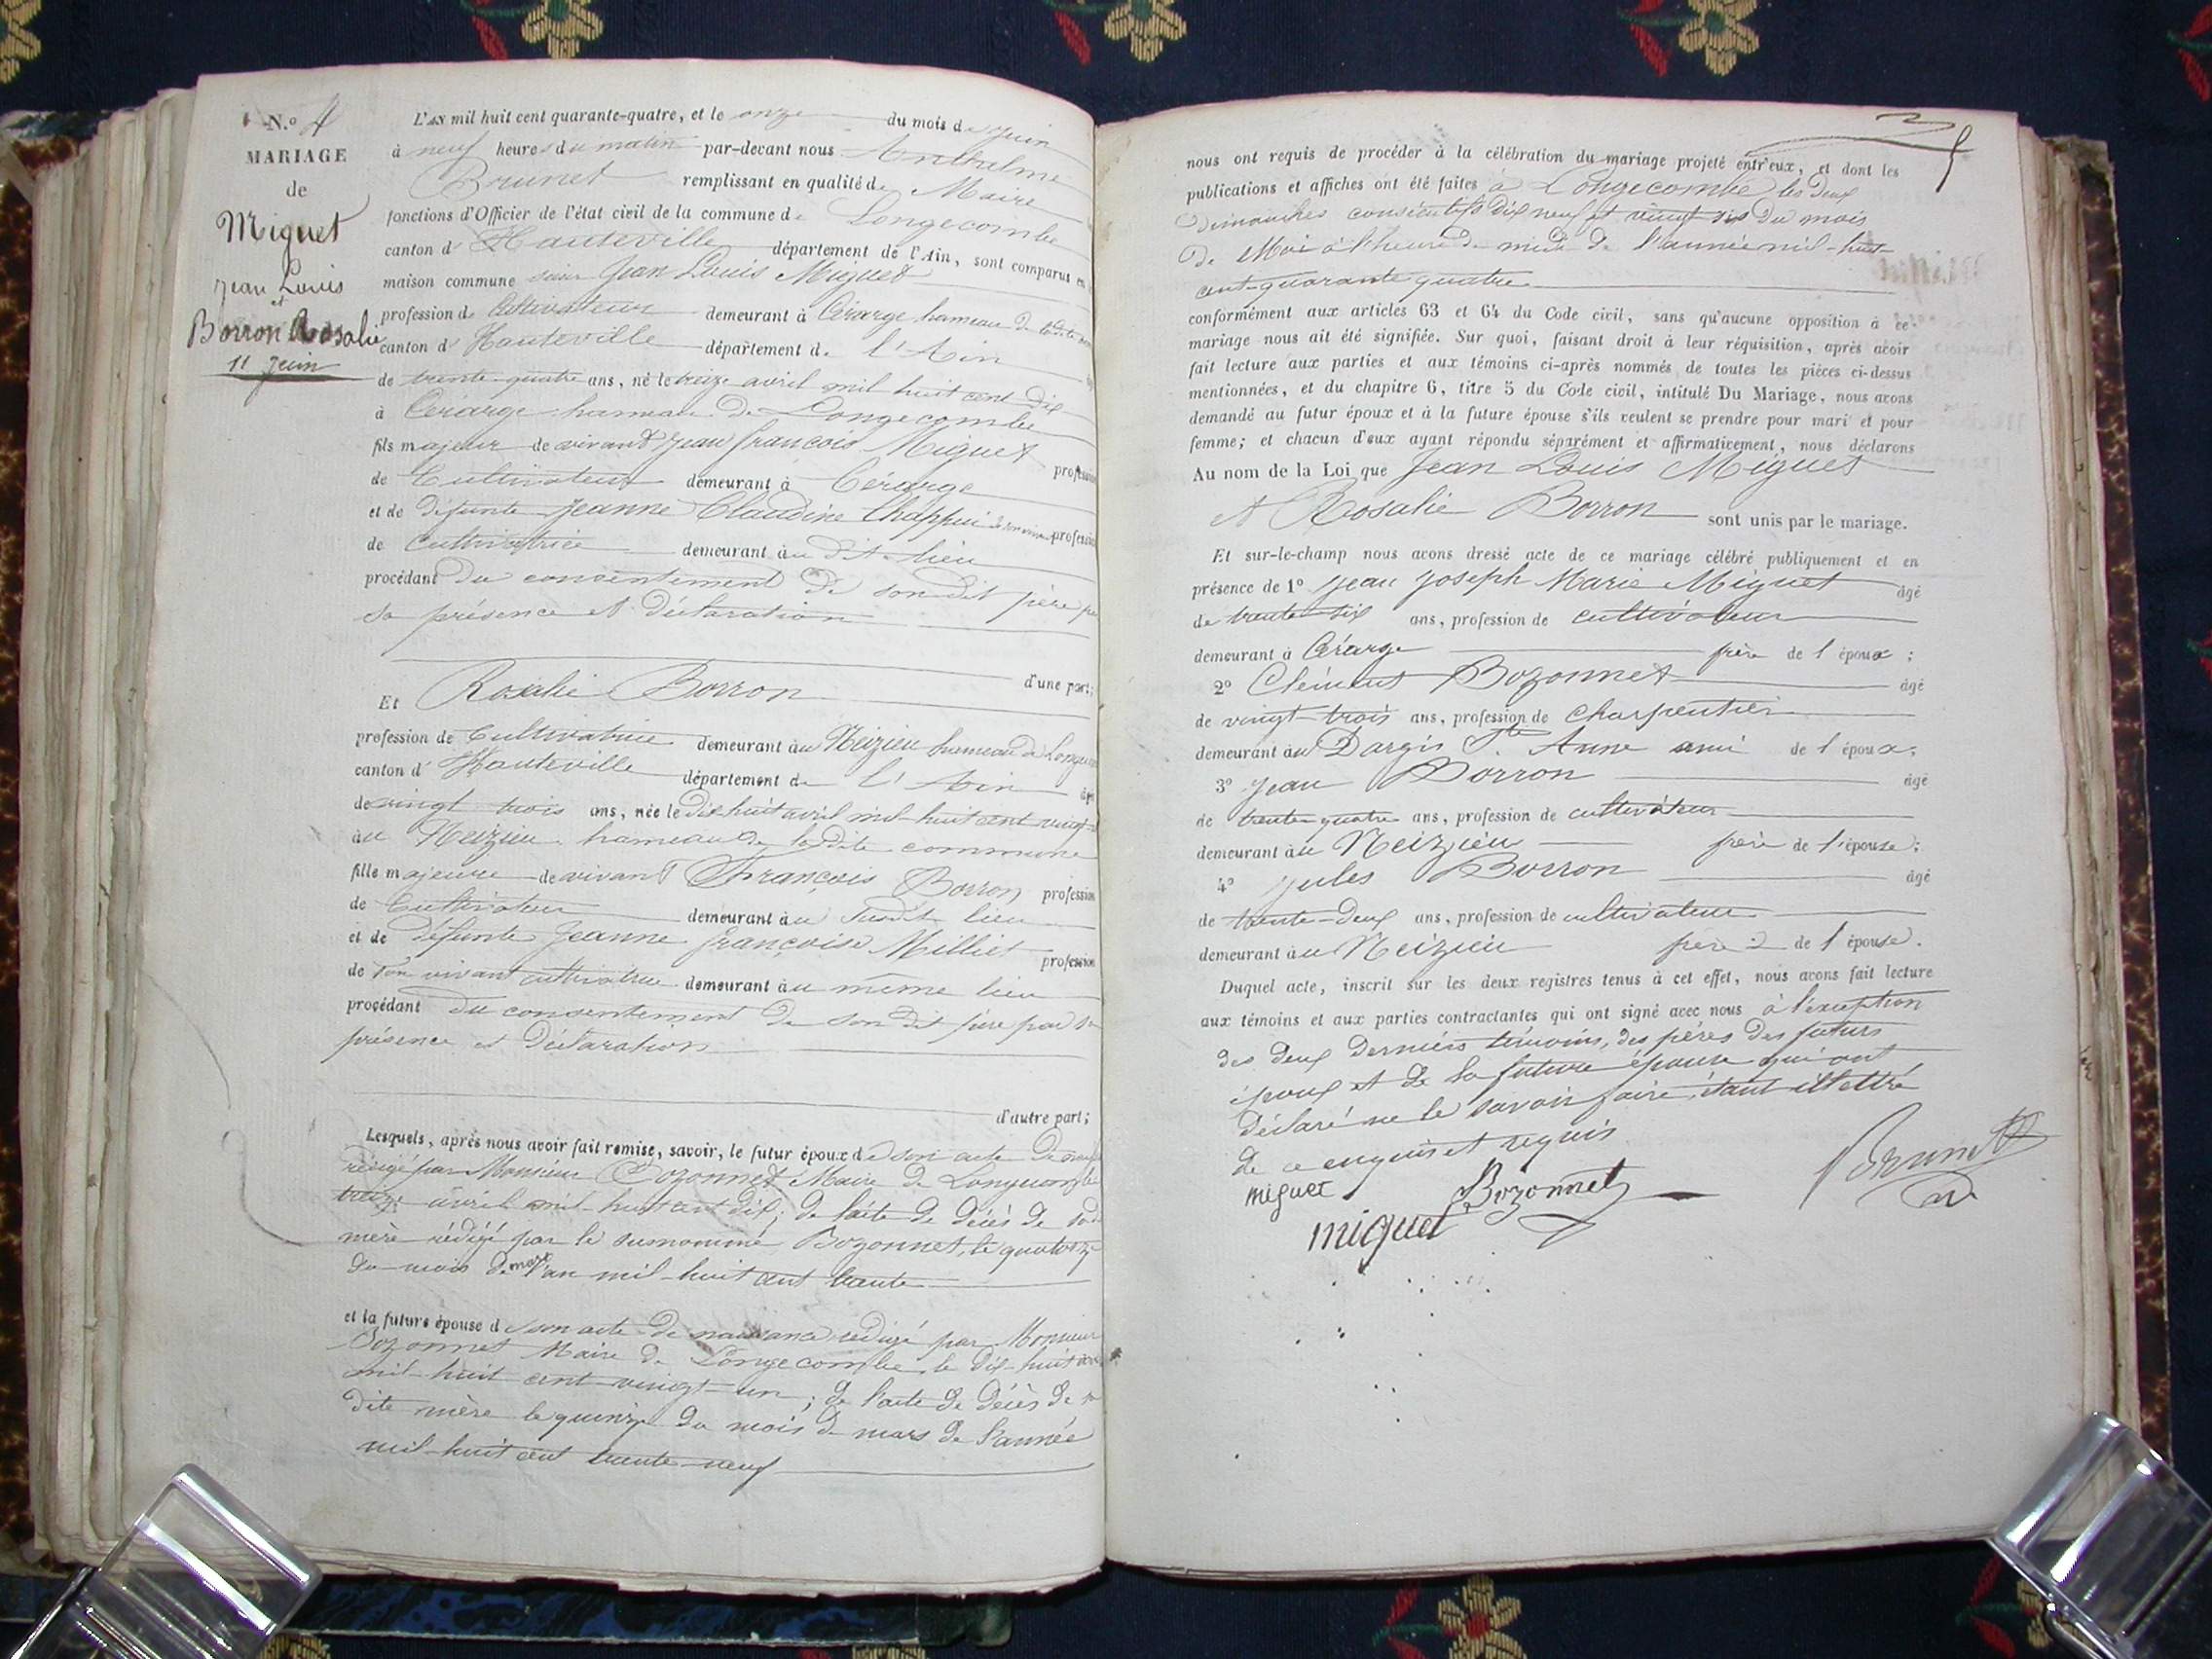 N.º 4
MARIAGE
de
Miguet
Jean Louis
et
Borron Rosalie
11 Juin
L'AN mil huit cent quarante-quatre, et le onze du mois de Juin
à neuf heures du matin par-devant nous Anthelme
Brunet remplissant en qualité de Maire
fonctions d'Officier de l'état civil de la commune de Longecombe
canton d' Hauteville département de l'Ain, sont comparus en
maison commune sieur Jean Louis Miguet
profession de Cultivateur demeurant à Cérarge hameau de
canton d' Hauteville département de l'Ain
de trente-quatre ans, né le treize avril mil huit cent dix
à Cérarge hameau de Longecombe
fils majeur de vivant Jean françois Miguet profession
de Cultivateur demeurant à Cérarge
et de défunte Jeanne Claudine Chappui de son vivant profession
de cultivatrice demeurant au dit lieu
procédant du consentement de son dit père par
sa présence et déclaration
d'une part;
Et Rosalie Borron
profession de Cultivatrice demeurant au Neizieu hameau de
canton d' Hauteville département de l'Ain
de vingt trois ans, née le dix-huit avril mil-huit cent vingt
au Neizieu hameau de la dite commune
fille majeure de vivant François Borron profession
de Cultivateur demeurant au susdit lieu
et de défunte Jeanne françoise Milliet profession
de son vivant cultivatrice demeurant au même lieu
procédant du consentement de son dit père par sa
présence et déclaration
d'autre part;
Lesquels, après nous avoir fait remise, savoir, le futur époux de son acte de
rédigé par Monsieur Bozonnet Maire de Longecombe
treize avril mil-huit cent dix; de l'acte de décès de
mère rédigé par le susnommé Bozonnet, le quatorze
du mois de mars l'an mil-huit cent trente
et la future épouse d son acte de naissance rédigé par Monsieur
Bozonnet Maire de Longecombe le dix-huit avril
mil-huit cent vingt-un; de l'acte de décès de sa
dite mère le quinze du mois de mars de l'année
mil-huit cent trente-neuf
nous ont requis de procéder à la célébration du mariage projeté entr'eux, et dont les
publications et affiches ont été faites à Longecombe les deux
dimanches consécutifs dix neuf et vingt-six du mois
de Mai à l'heure de midi de l'année mil-huit
cent-quarante quatre
conformément aux articles 63 et 64 du Code civil, sans qu'aucune opposition à ce
mariage nous ait été signifiée. Sur quoi, faisant droit à leur réquisition, après avoir
fait lecture aux parties et aux témoins ci-après nommés de toutes les pièces ci-dessus
mentionnées, et du chapitre 6, titre 5 du Code civil, intitulé Du Mariage, nous avons
demandé au futur époux et à la future épouse s'ils veulent se prendre pour mari et pour
femme; et chacun d'eux ayant répondu séparément et affirmativement, nous déclarons
Au nom de la Loi que Jean Louis Miguet
et Rosalie Borron sont unis par le mariage.
Et sur-le-champ nous avons dressé acte de ce mariage célébré publiquement et en
présence de 1º Jean Joseph Marie Miguet âgé
de trente-six ans, profession de cultivateur
demeurant à Cérarge frère de l'époux;
2º Clément Bozonnet âgé
de vingt-trois ans, profession de charpentier
demeurant au Dargis Ste Anne ami de l'époux;
3º Jean Borron âgé
de trente-quatre ans, profession de cultivateur
demeurant au Neizieu frère de l'épouse;
4º Jules Borron âgé
de trente-deux ans, profession de cultivateur
demeurant au Neizieu frère de l'épouse.
Duquel acte, inscrit sur les deux registres tenus à cet effet, nous avons fait lecture
aux témoins et aux parties contractantes qui ont signé avec nous à l'exception
des deux derniers témoins, des pères des futurs
époux et de la future épouse qui ont
déclaré ne le savoir faire étant illettré
de ce enquis et requis
miguet Bozonnet Brunet
miguet